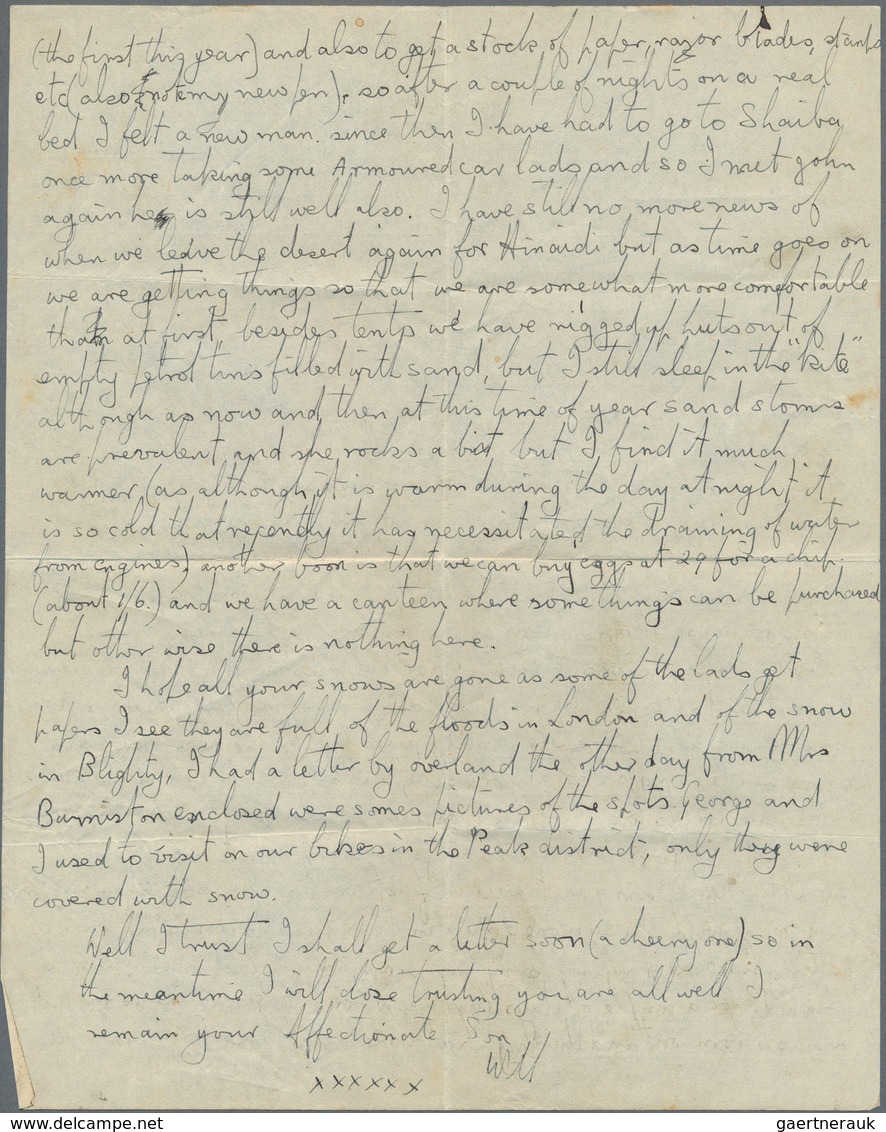 (the first this year) and also to get a stock of paper, razor blades, stamps
etc (also note my new pen), so after a couple of nights on a real
bed I felt a new man. since then I have had to go to Shaiba
once more taking some Armoured car lads and so I met John
again he is still well also. I have still no more news of
when we leave the desert again for Hinaidi but as time goes on
we are getting things so that we are somewhat more comfortable
than at first, besides tents we have rigged up huts out of
empty petrol tins filled with sand, but I still sleep in the "kite"
although as now and then at this time of year sand storms
are prevalent and she rocks a bit but I find it much
warmer (as although it is warm during the day at night it
is so cold that recently it has necessitated the draining of water
from engines) another boon is that we can buy eggs at 29 for a chip
(about 1/6.) and we have a canteen where some things can be purchased
but other wise there is nothing here.
I hope all your snows are gone as some of the lads get
papers I see they are full of the floods in London and of the snow
in Blighty, I had a letter by overland the other day from Mrs
Burniston enclosed were somes pictures of the spots George and
I used to visit on our bikes in the Peak district, only they were
covered with snow.
Well I trust I shall get a letter soon (a cheery one) so in
the meantime I will close trusting you are all well I
remain your Affectionate Son
Will
x x x x x x
www.delcampe.net
gaertnerauk